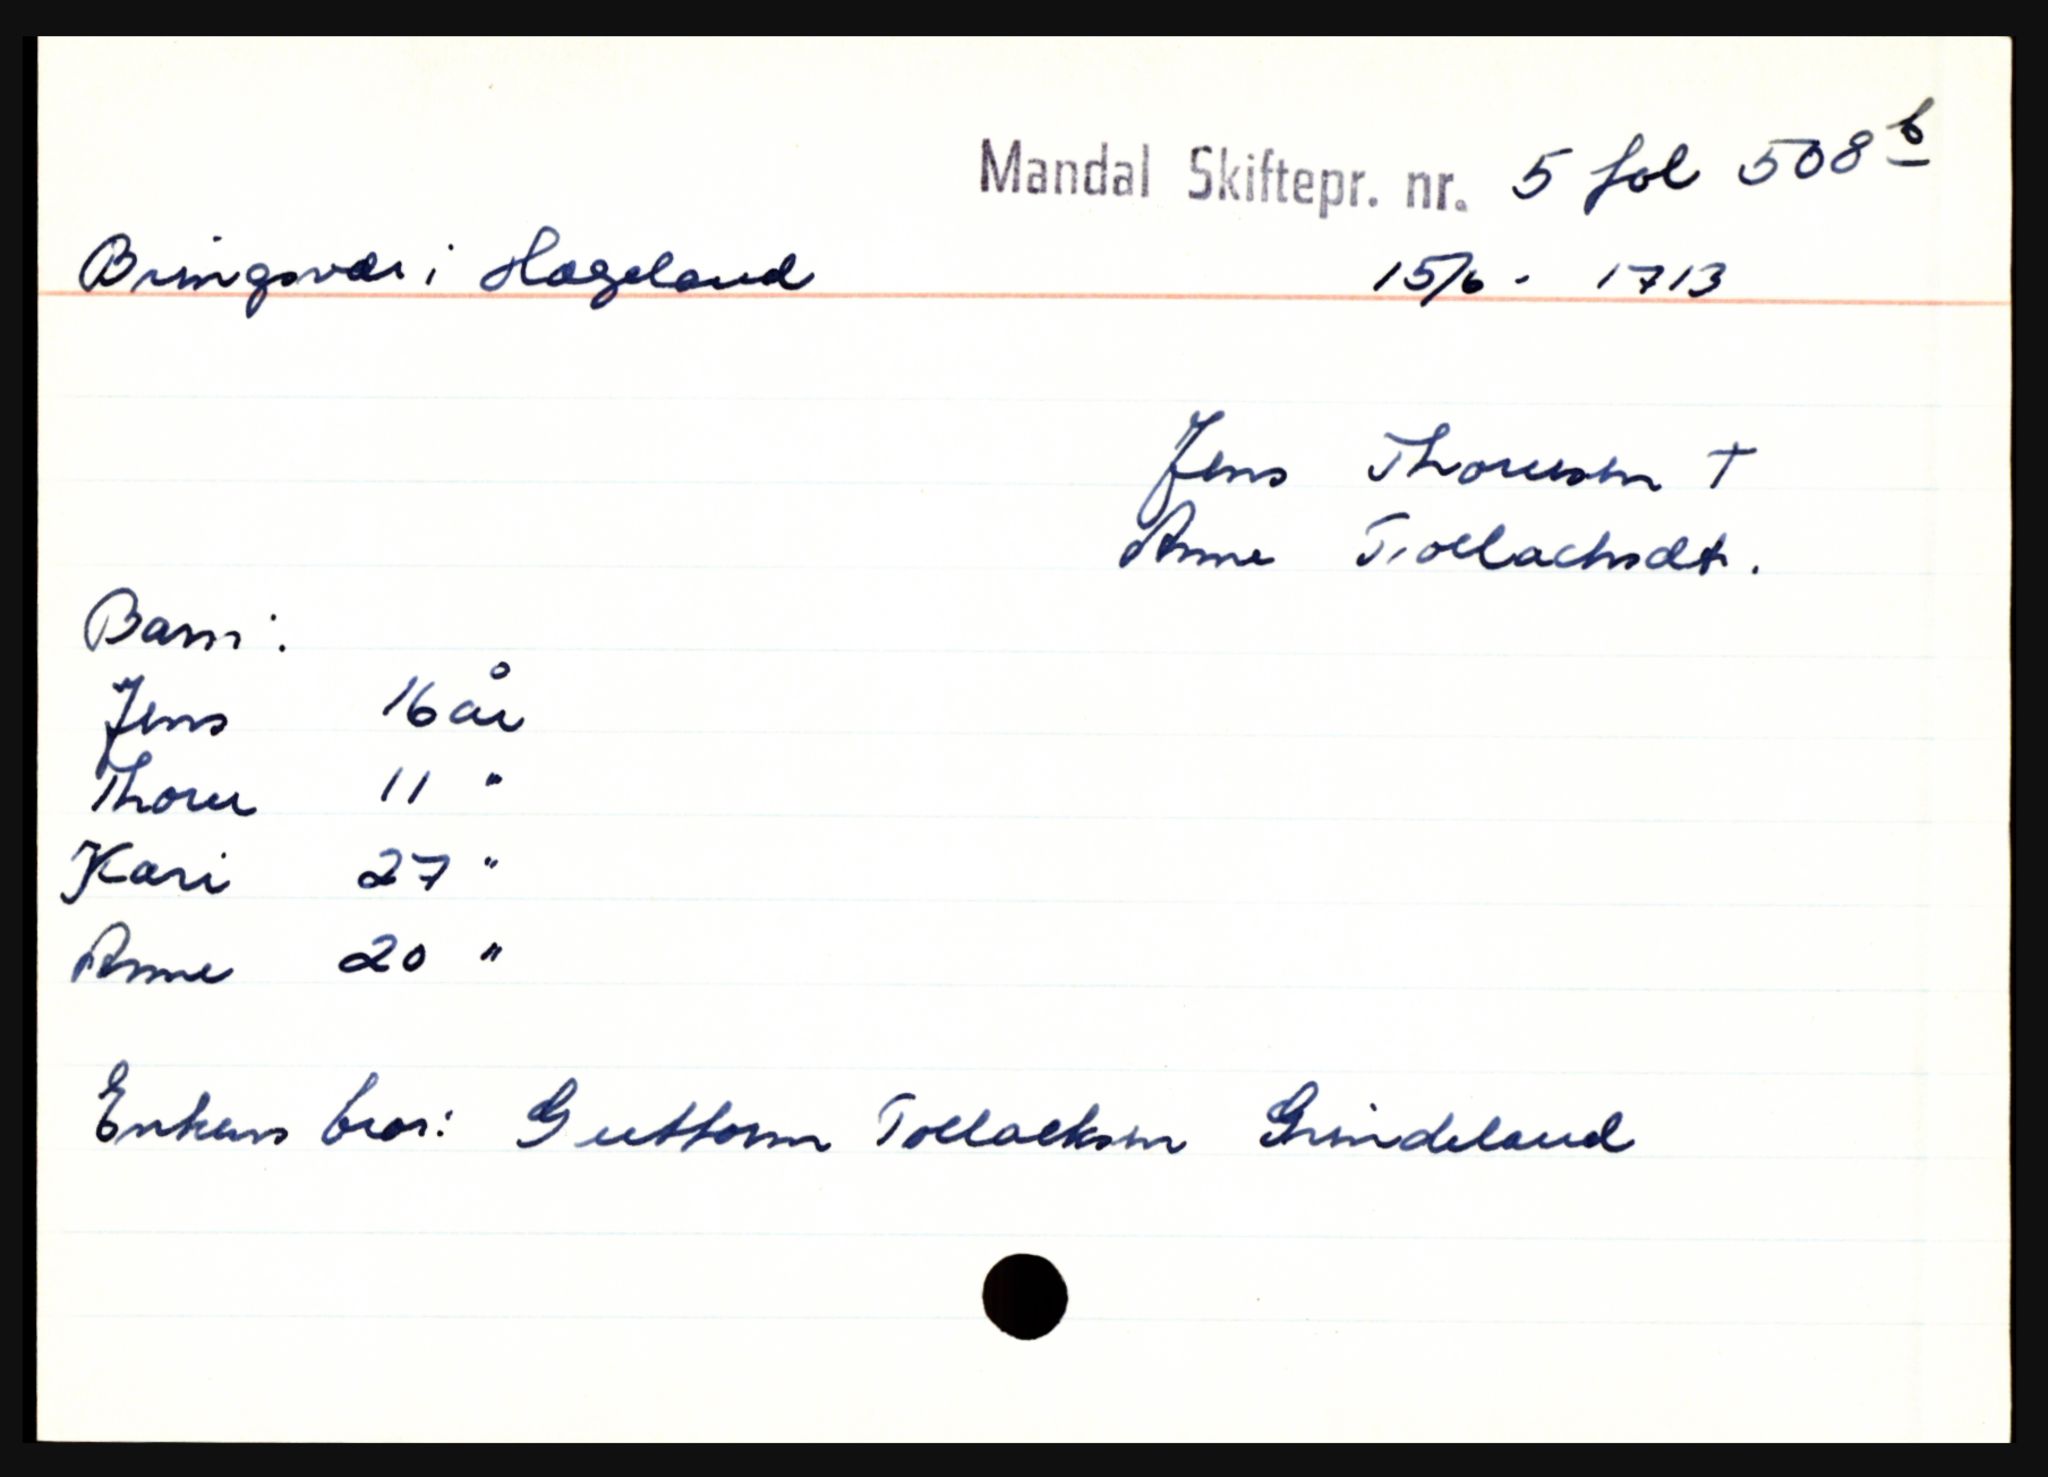 Mandal Skiftepr. nr. 5 fol 508 b
Bringsvær i Hægeland 15/6 - 1713
Jens Thoresen †
Anne Tollachsdt.
Barn:
Jens 16 år
Thore 11 "
Kari 27 "
Anne 20 "
Enkens bror: Guttorm Tollacksen Grindeland